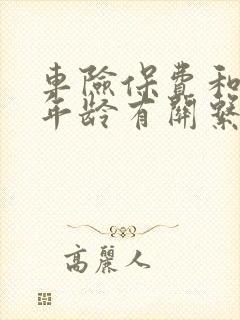 車險保費和
年齡有關繫
高麗人